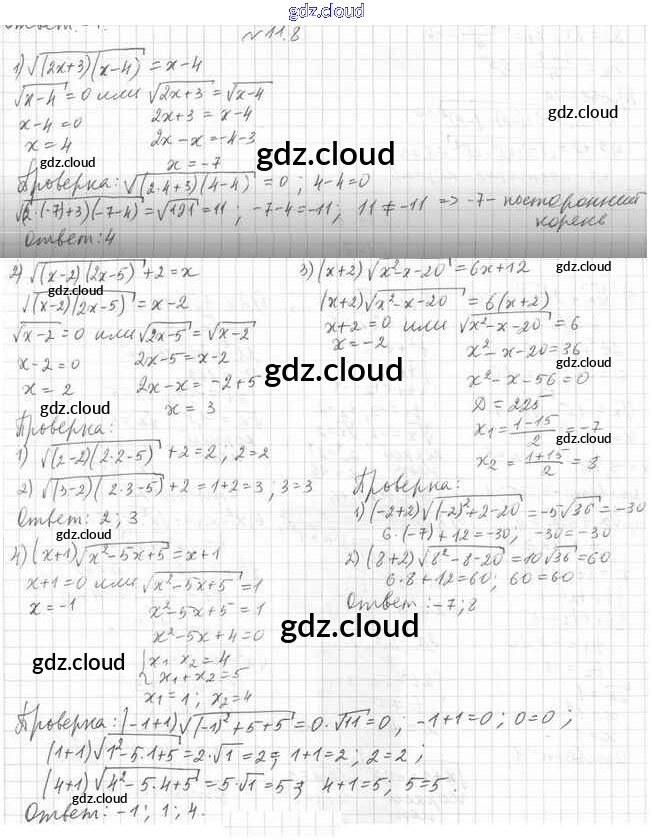 gdz.cloud
№11.8
1) √((2x+3)(x-4)) = x-4
√(x-4) = 0 или √(2x+3) = √(x-4)
x-4=0 2x+3 = x-4
x = 4 2x-x = -4-3
x = -7
gdz.cloud
gdz.cloud
gdz.cloud
Проверка: √((2·4+3)(4-4)) = 0; 4-4=0
√(2·(-7)+3)(-7-4) = √121 = 11; -7-4=-11; 11 ≠ -11 => -7 - посторонний
корень
Ответ: 4
2) √((x-2)(2x-5)) + 2 = x
√((x-2)(2x-5)) = x-2
√(x-2) = 0 или √(2x-5) = √(x-2)
x-2=0 2x-5 = x-2
x = 2 2x-x = -2+5
x = 3
gdz.cloud
gdz.cloud
Проверка:
1) √((2-2)(2·2-5)) + 2 = 2; 2=2
2) √((3-2)(2·3-5)) + 2 = 1+2 = 3; 3=3
Ответ: 2; 3
3) (x+2)√(x²-x-20) = 6x+12
(x+2)√(x²-x-20) = 6(x+2)
x+2=0 или √(x²-x-20) = 6
x = -2 x²-x-20=36
x²-x-56=0
D = 225
x₁ = (1-15)/2 = -7
x₂ = (1+15)/2 = 8
gdz.cloud
gdz.cloud
gdz.cloud
Проверка:
1) (-2+2)√((-2)²+2-20) = -5√36 = -30
6·(-7)+12=-30; -30=-30
2) (8+2)√(8²-8-20) = 10√36 = 60
6·8+12=60; 60=60
Ответ: -7; 8
4) (x+1)√(x²-5x+5) = x+1
x+1=0 или √(x²-5x+5) = 1
x = -1 x²-5x+5 = 1
x²-5x+4=0
{x₁ x₂ = 4
x₁+x₂ = 5
x₁ = 1; x₂ = 4
gdz.cloud
gdz.cloud
gdz.cloud
gdz.cloud
Проверка: (-1+1)√((-1)²+5+5) = 0·√11 = 0; -1+1=0; 0=0;
(1+1)√(1²-5·1+5) = 2·√1 = 2; 1+1=2; 2=2;
(4+1)√(4²-5·4+5) = 5·√1 = 5; 4+1=5; 5=5.
Ответ: -1; 1; 4.
gdz.cloud
gdz.cloud